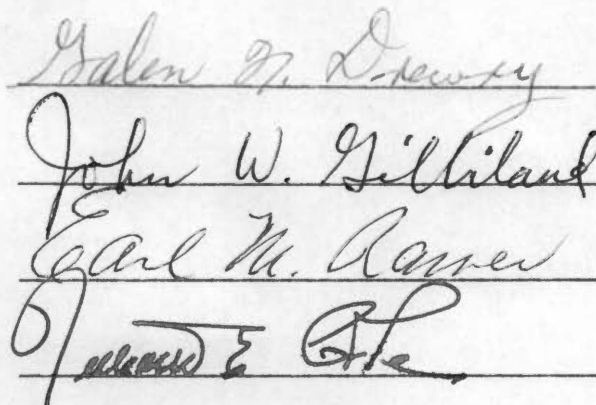 Galen N. Drewry
John W. Gilliland
Earl M. Ramer
E